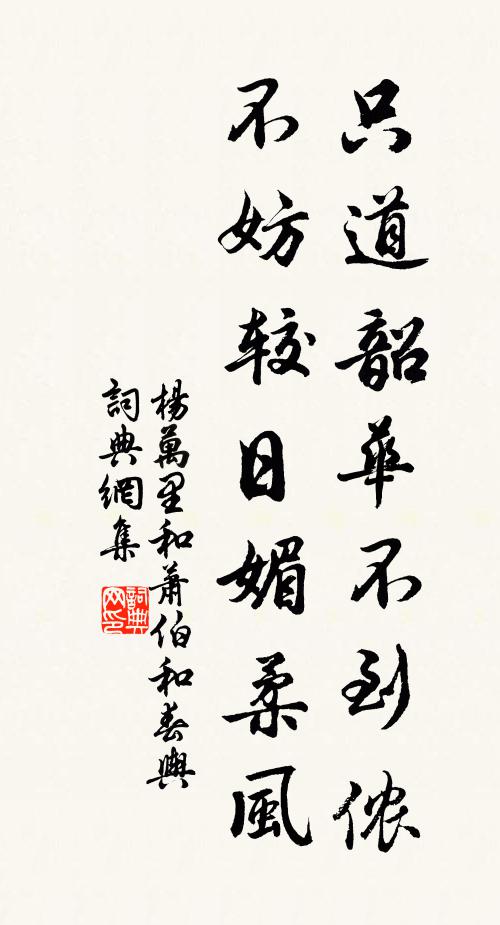 只道韶華不到侬
不妨较日媚柔風
楊萬里和蕭伯和春興
詞典網集
詞典
网印